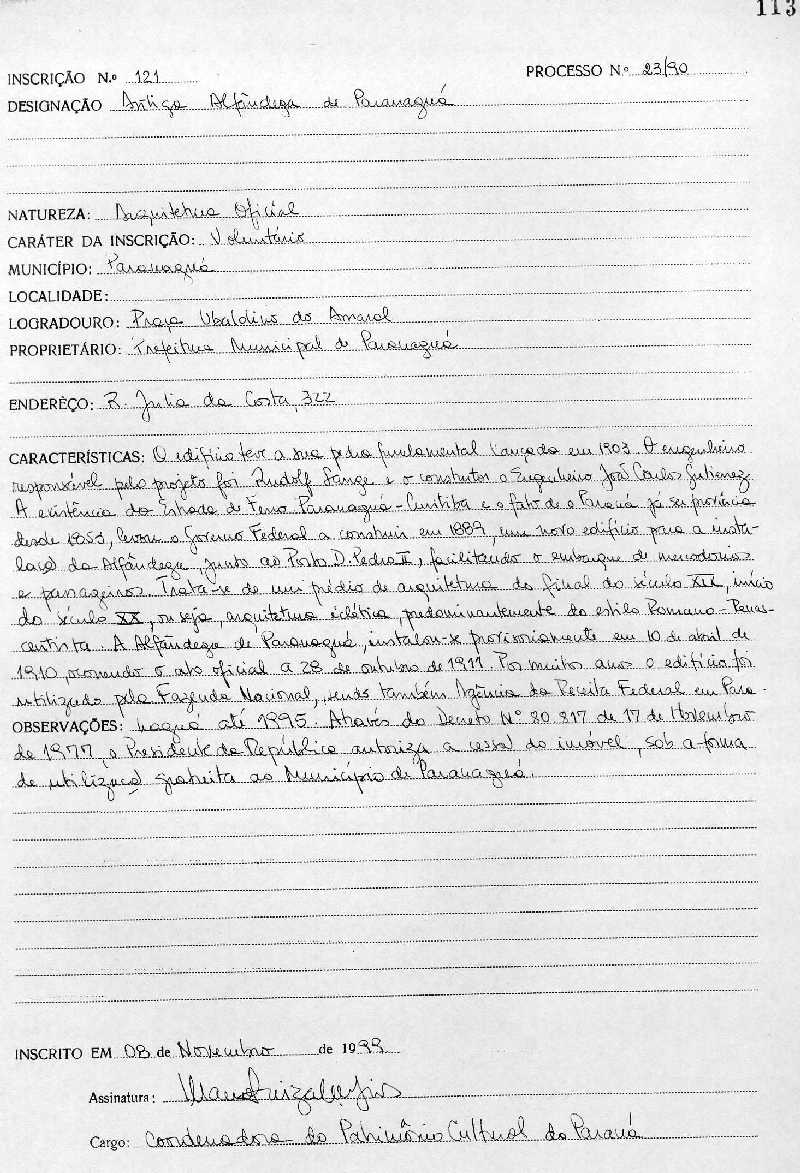 113
INSCRIÇÃO N.º 121
PROCESSO N.º 23/90
DESIGNAÇÃO Antiga Alfândega de Paranaguá
NATUREZA: Arquitetura Oficial
CARÁTER DA INSCRIÇÃO: Voluntário
MUNICÍPIO: Paranaguá
LOCALIDADE:
LOGRADOURO: Praça Ubaldino do Amaral
PROPRIETÁRIO: Prefeitura Municipal de Paranaguá
ENDERÊÇO: R. Julia da Costa, 322
CARACTERÍSTICAS: O edifício teve a sua pedra fundamental lançada em 1903. O engenheiro
responsável pelo projeto foi Rudolf Lange e o construtor o Engenheiro João Carlos Gutierrez.
A existência da Estrada de Ferro Paranaguá-Curitiba e o fato de o Paraná já ser província
desde 1853, levou o Governo Federal a construir em 1889, um novo edifício para a insta-
lação da Alfândega, junto ao Porto D. Pedro II, facilitando o embarque de mercadorias
e passageiros. Trata-se de um prédio de arquitetura do final do século XIX, início
do século XX, ou seja, arquitetura eclética, predominantemente do estilo Romano-Renas-
centista. A Alfândega de Paranaguá, instalou-se provisoriamente em 10 de abril de
1910, ocorrendo o ato oficial a 28 de outubro de 1911. Por muitos anos o edifício foi
utilizado pela Fazenda Nacional, sendo também Agência da Receita Federal em Para-
OBSERVAÇÕES: naguá até 1995. Através do Decreto Nº 80.817 de 17 de Novembro
de 1977, o Presidente da República autoriza a cessão do imóvel, sob a forma
de utilização gratuita ao Município de Paranaguá.
INSCRITO EM 08 de Novembro de 1999
Assinatura:
Cargo: Coordenadora do Patrimônio Cultural do Paraná